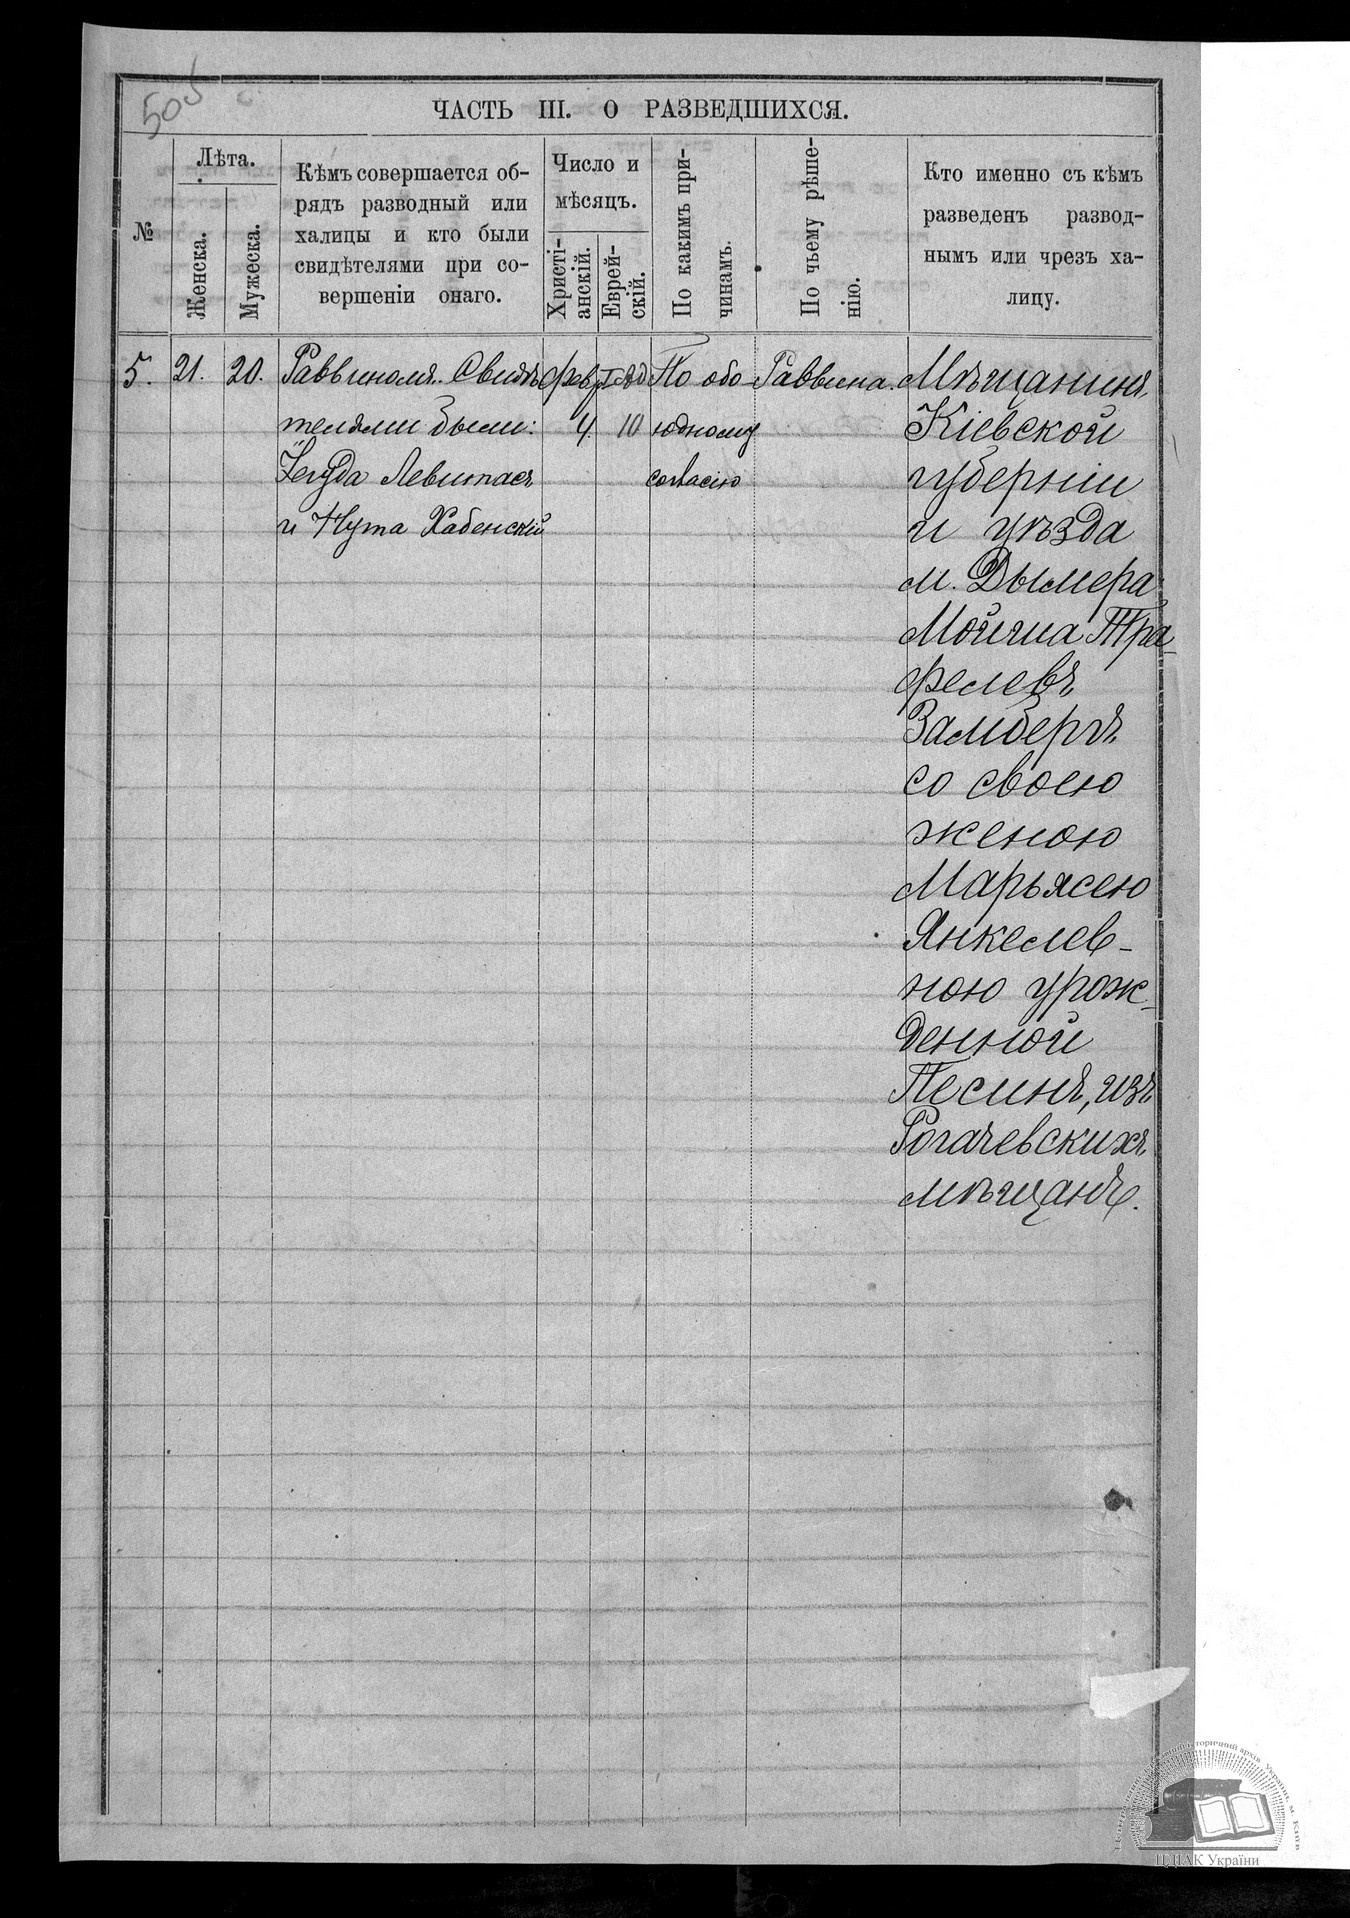 505
ЧАСТЬ III. О РАЗВЕДШИХСЯ.
№
Лѣта.
Женска.
Мужеска.
Кѣмъ совершается об-
рядъ разводный или
халицы и кто были
свидѣтелями при со-
вершеніи онаго.
Число и
мѣсяцъ.
Христі-
анскій.
Еврей-
скій.
По какимъ при-
чинамъ.
По чьему рѣше-
нію.
Кто именно съ кѣмъ
разведенъ развод-
нымъ или чрезъ ха-
лицу.
5.
21.
20.
Раввиномъ. Свидѣ
телями были:
Іегуда Левитасъ
и Нута Хабенскій
Февр
4
10
По обо
юдному
согласію
Раввина.
Мѣщанинъ
Кіевской
губерніи
и уѣзда
м. Дымера
Мойша Тра-
фелевъ
Замбергъ
со своею
женою
Марьясею
Янкелев-
ною урож-
денной
Песинъ, изъ
Рогачевскихъ
мѣщанъ.
ЦДІАК України